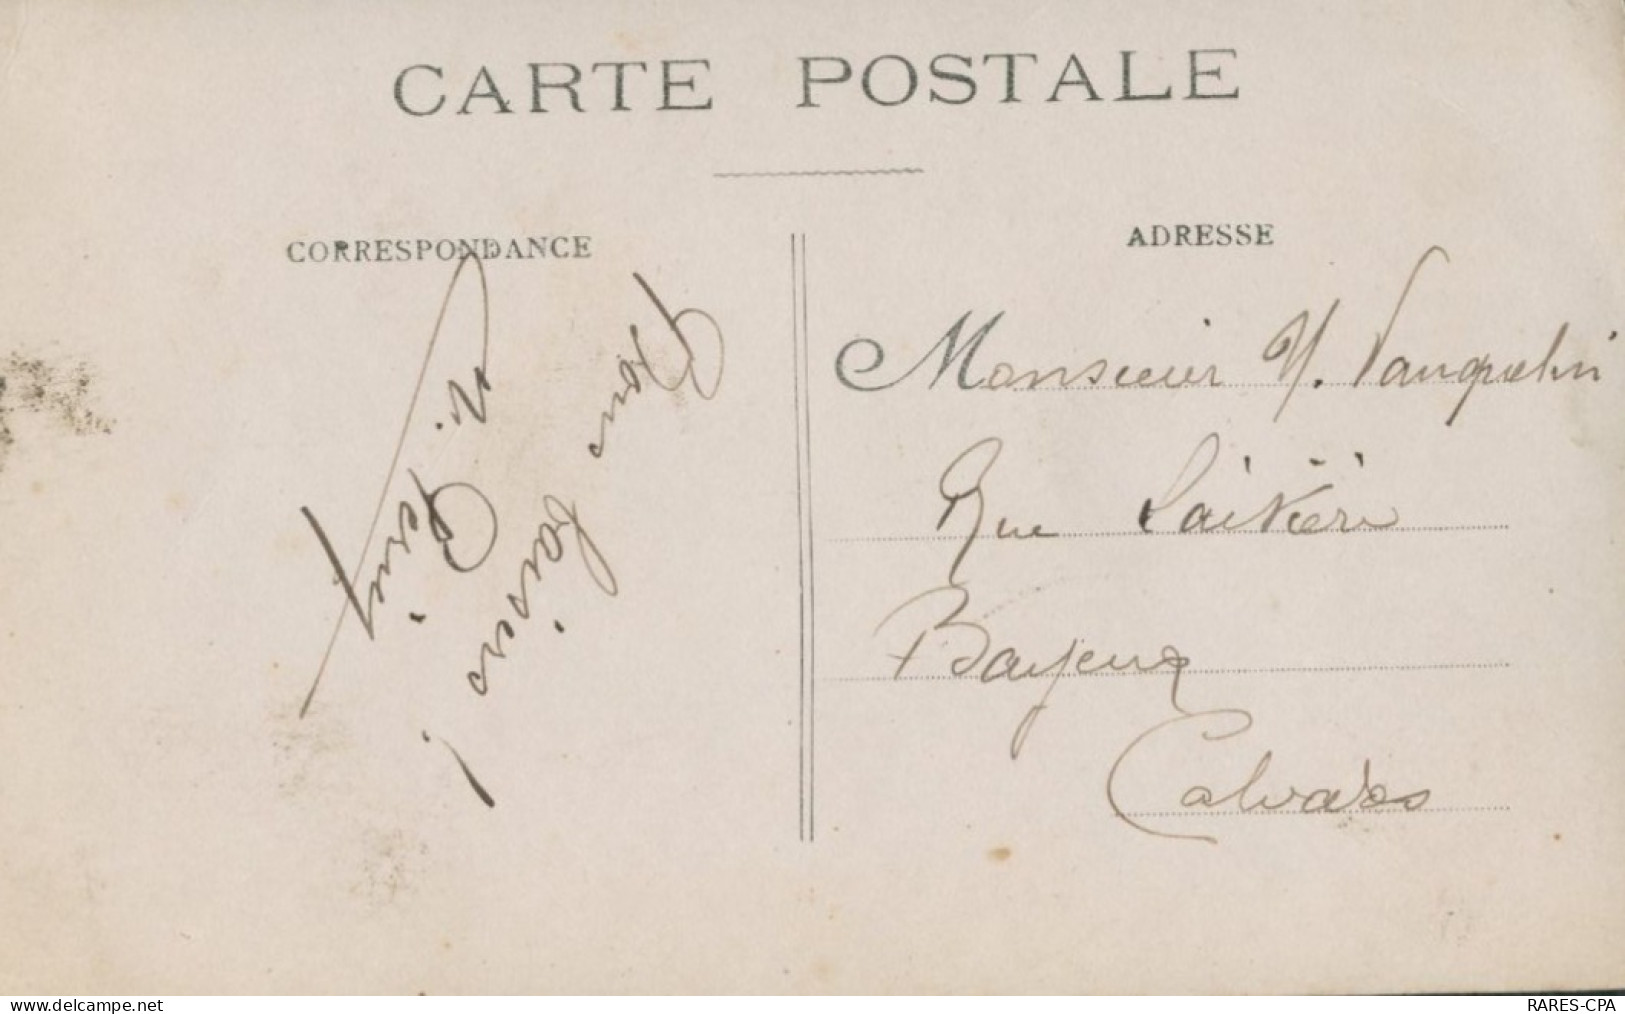 CARTE POSTALE
CORRESPONDANCE
ADRESSE
Bons baisers !
Monsieur Vauquelin
Rue Laitière
Bayeux
Calvados
www.delcampe.net
RARES-CPA